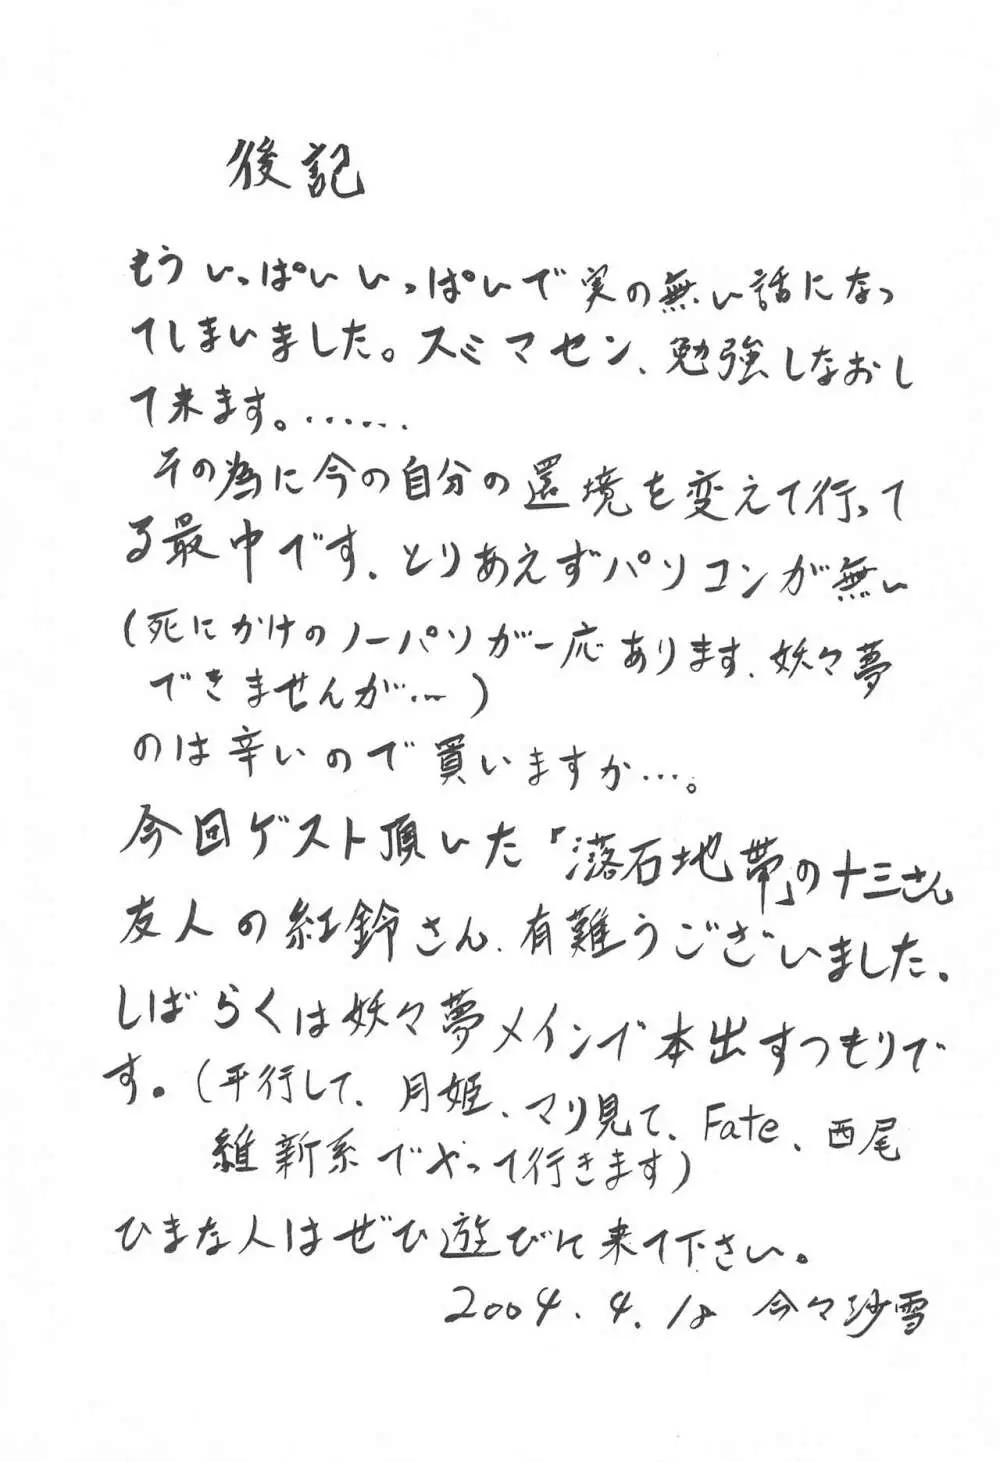 後記
もういっぱいいっぱいで実の無い話になっ
てしまいました。スミマセン、勉強しなおし
て来ます。……
その為に今の自分の還境を変えて行って
る最中です、とりあえずパソコンが無い
(死にかけのノーパソが一応あります、妖々夢
できませんが…)
のは辛いので買いますか…。
今回ゲスト頂いた「落石地帯」の十三さん
友人の紅鈴さん、有難うございました。
しばらくは妖々夢メインで本出すつもりで
す。(平行して、月姫、マリ見て、Fate、西尾
維新系でやって行きます)
ひまな人はぜひ遊びに来て下さい。
2004.4.18 今々沙雪